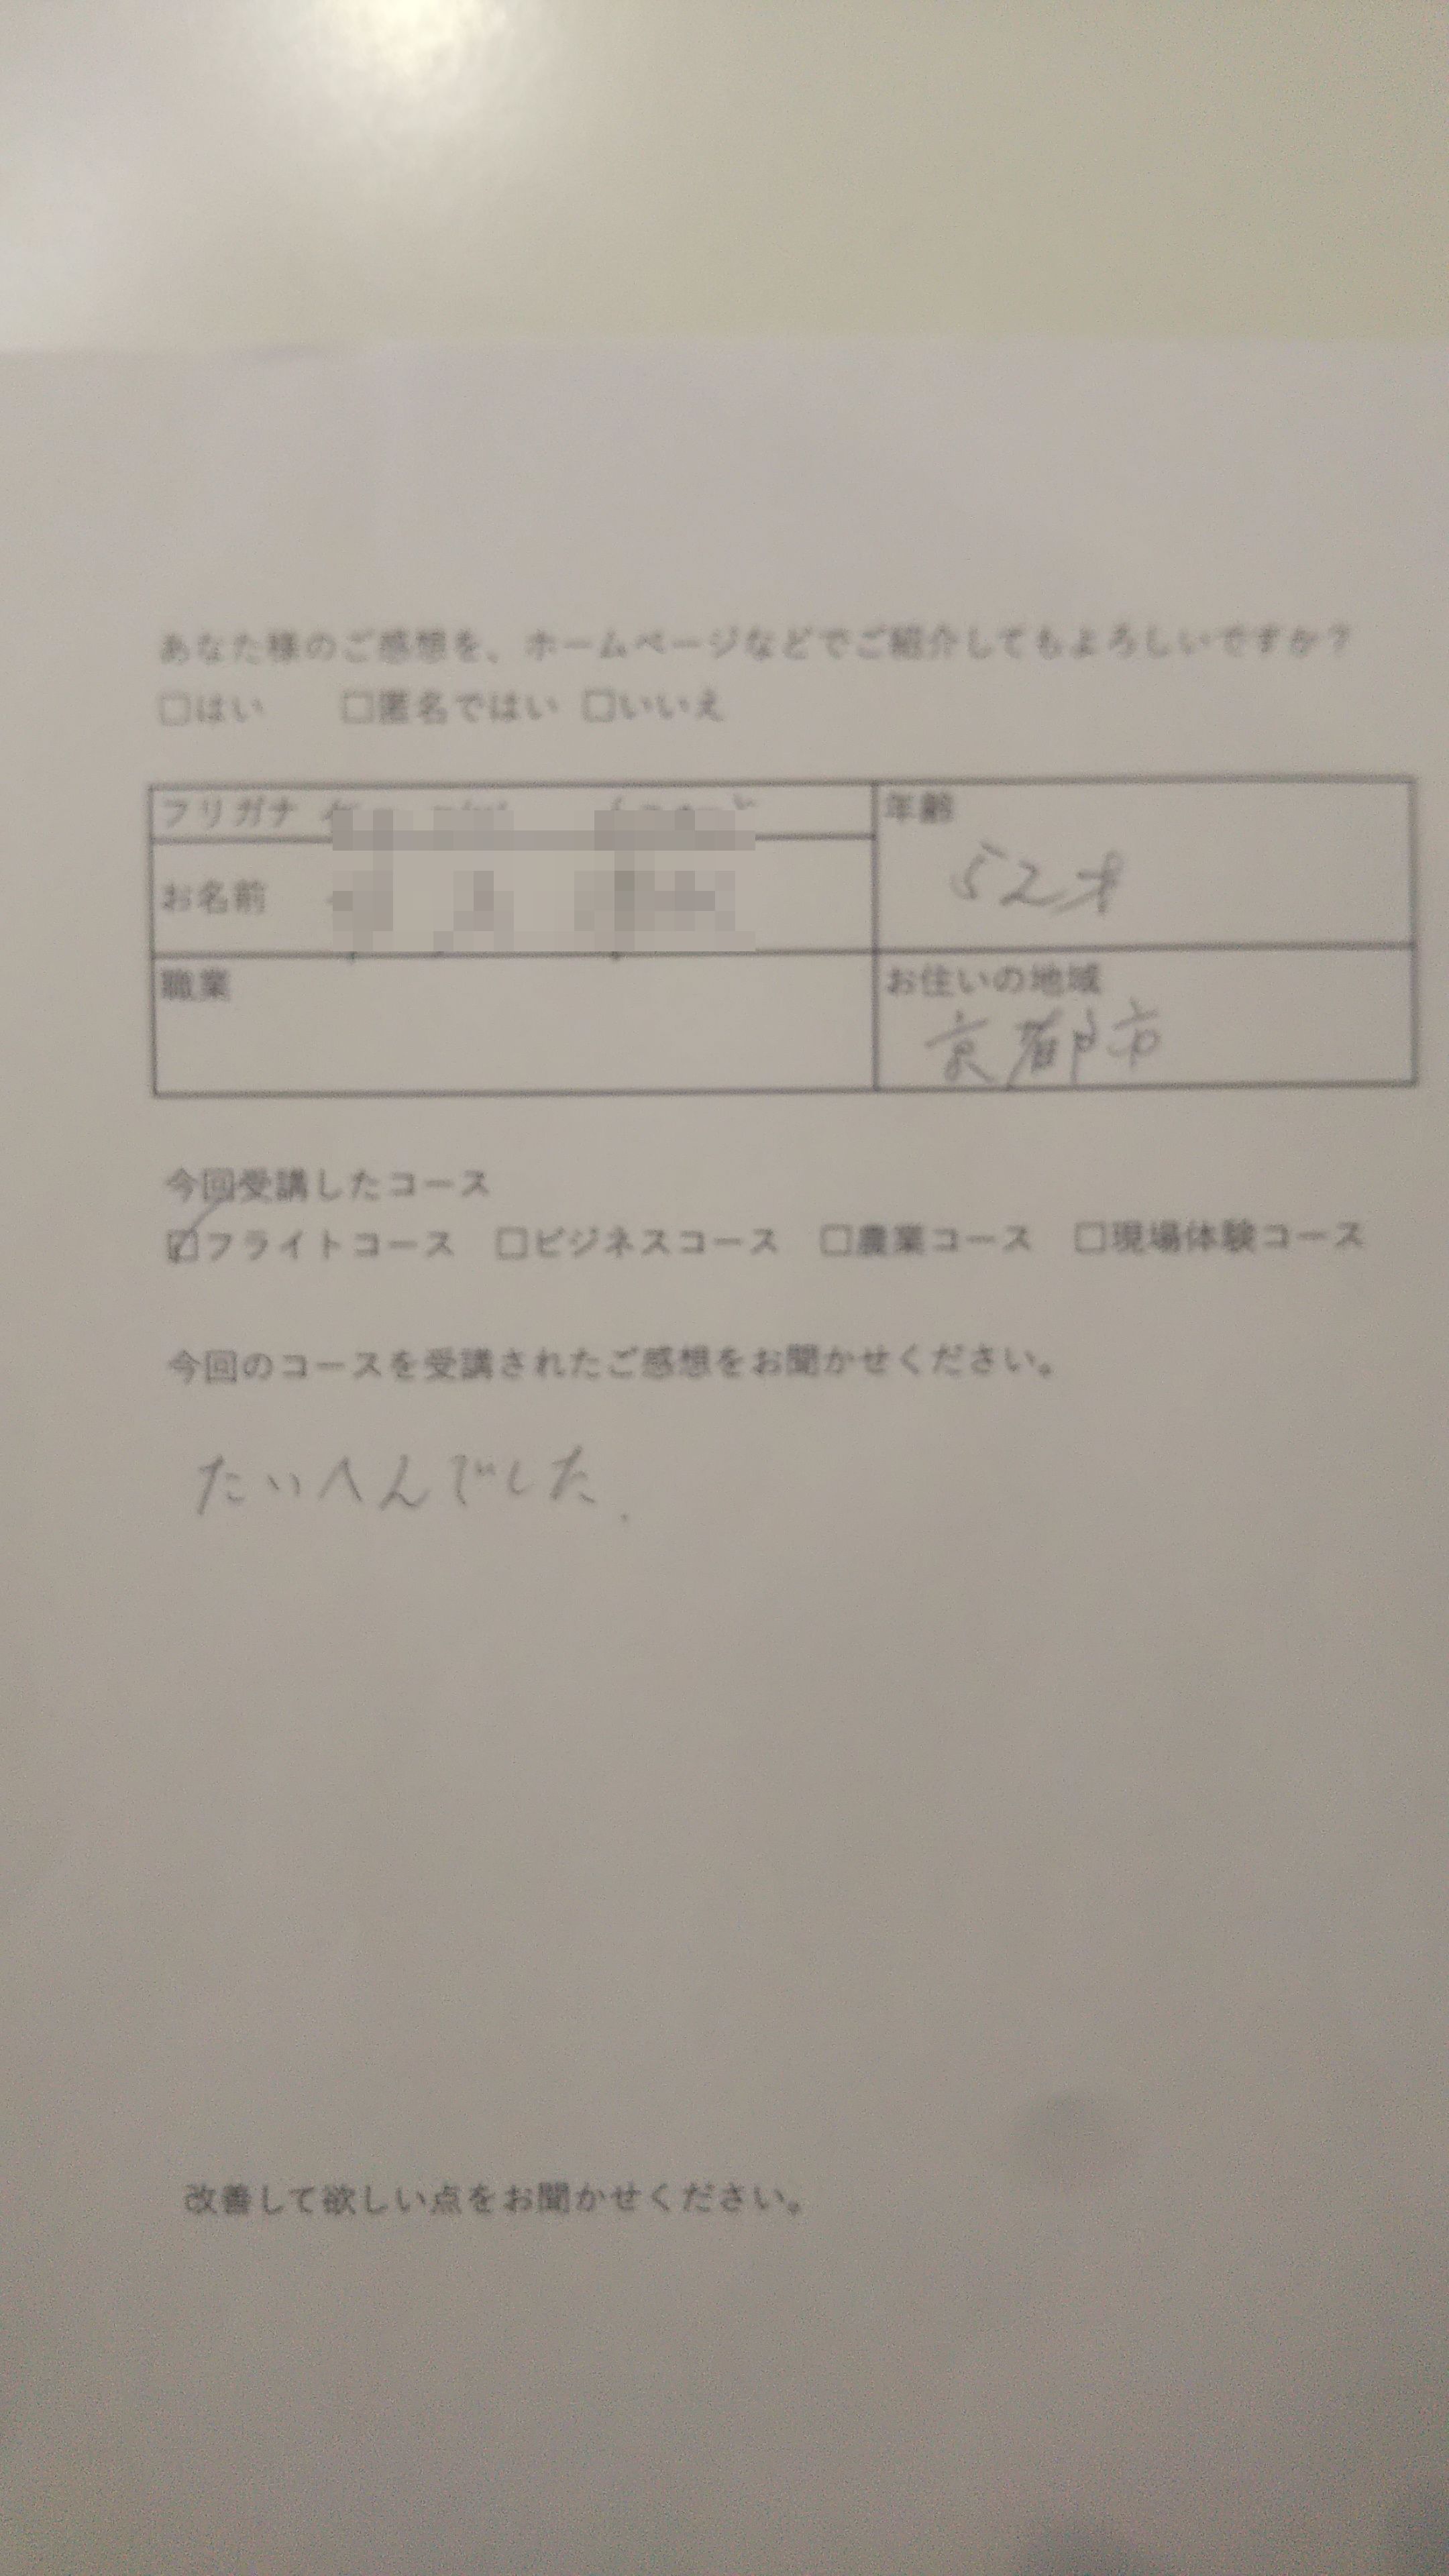 あなた様のご感想を、ホームページなどでご紹介してもよろしいですか？
□はい □匿名ではい □いいえ
フリガナ
お名前
年齢
52才
職業
お住いの地域
京都市
今回受講したコース
☑フライトコース □ビジネスコース □農業コース □現場体験コース
今回のコースを受講されたご感想をお聞かせください。
たいへんでした.
改善して欲しい点をお聞かせください。